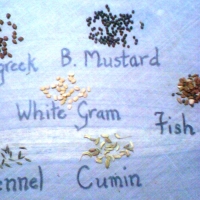 greek B. Mustard
White Gram
Fish
ennel Cumin